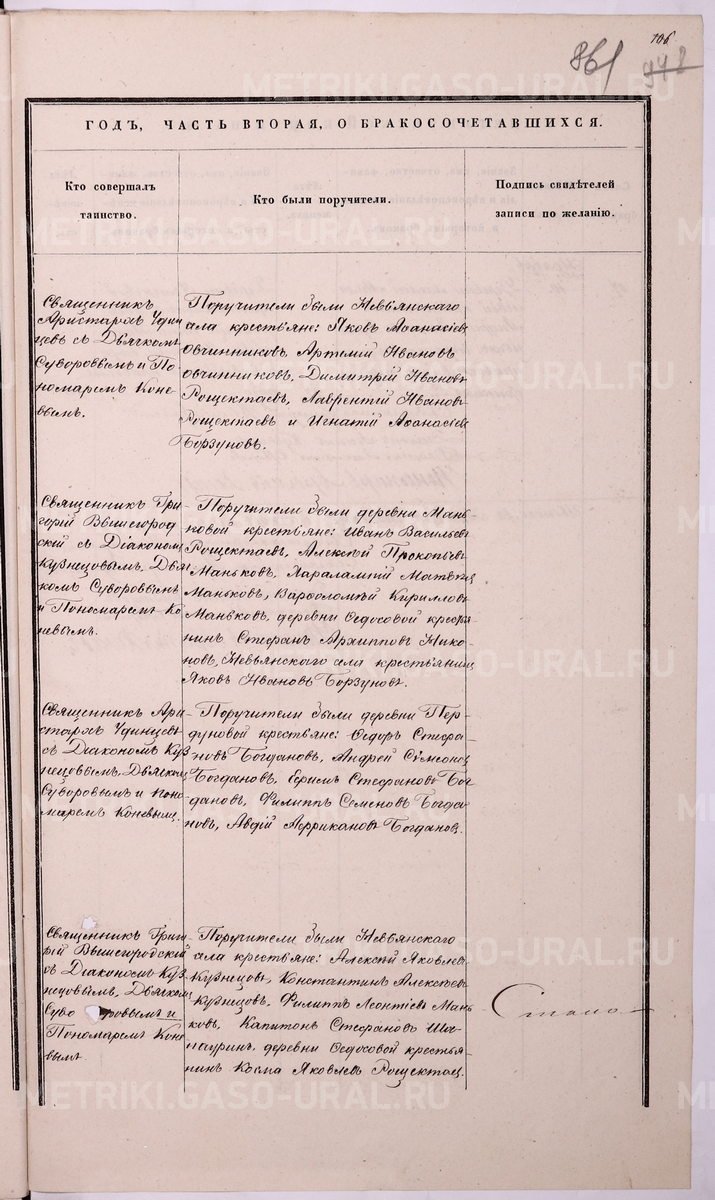 106
861
948
ГОДЪ, ЧАСТЬ ВТОРАЯ, О БРАКОСОЧЕТАВШИХСЯ.
Кто совершалъ
таинство.
Кто были поручители.
Подпись свидѣтелей
записи по желанію.
Священникъ
Аристархъ Удин
цевъ съ Дьячкомъ
Суворовымъ и По
номаремъ Коне
вымъ.
Поручители были Невьянскаго
села крестьяне: Яковъ Аѳанасіевъ
Овчинниковъ, Артемій Ивановъ
Овчинниковъ, Димитрій Ивановъ
Рощектаевъ, Лаврентій Ивановъ
Рощектаевъ и Игнатій Аѳанасіевъ
Борзуновъ.
Священникъ Гри
горій Вышегород
скій съ Діакономъ
Кузнецовымъ, Дьяч
комъ Суворовымъ
и Пономаремъ Ко
невымъ.
Поручители были деревни Мань
ковой крестьяне: Иванъ Васильевъ
Рощектаевъ, Алексѣй Прокопьевъ
Маньковъ, Харалампій Матвѣевъ
Маньковъ, Варѳоломѣй Кирилловъ
Маньковъ, деревни Ѳедосовой крестья
нинъ Стефанъ Архипповъ Нико
новъ, Невьянскаго села крестьянинъ
Яковъ Ивановъ Борзуновъ.
Священникъ Ари
стархъ Удинцевъ
съ Діакономъ Куз
нецовымъ, Дьячкомъ
Суворовымъ и Поно
маремъ Коневымъ.
Поручители были деревни Пер
дуновой крестьяне: Ѳедоръ Стефа
новъ Богдановъ, Андрей Сѵмеоновъ
Богдановъ, Ефимъ Стефановъ Бог
дановъ, Филиппъ Семеновъ Богда
новъ, Авдій Африкановъ Богдановъ.
Священникъ Григо
рій Вышегородскій
съ Діакономъ Куз
нецовымъ, Дьячкомъ
Суворовымъ и
Пономаремъ Коне
вымъ.
Поручители были Невьянскаго
села крестьяне: Алексѣй Яковлевъ
Кузнецовъ, Константинъ Алексѣевъ
Кузнецовъ, Филипъ Леонтіевъ Мань
ковъ, Капитонъ Стефановъ
деревни Ѳедосовой крестья
нинъ Косма Яковлевъ Рощектаевъ.
METRIKI.GASO-URAL.RU